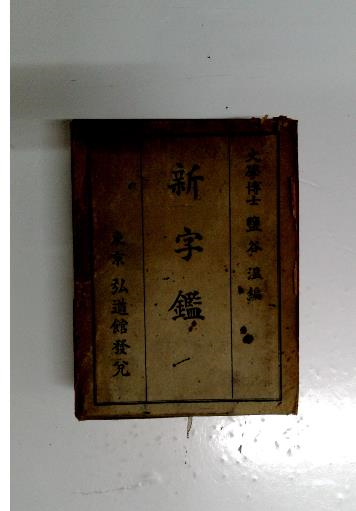 文學博士 鹽谷温編
新字鑑
東京 弘道館發兌